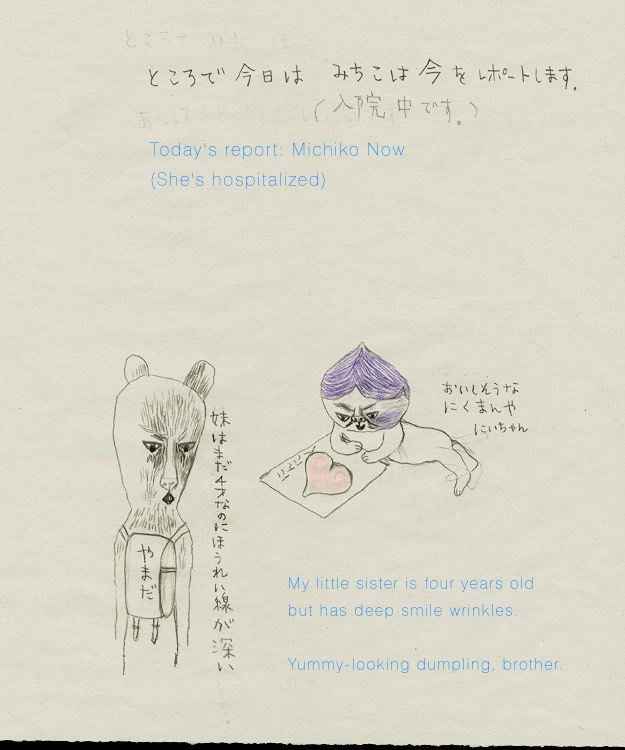 ところで 今日は みちこは 今をレポートします。
(入院中です。)
Today's report: Michiko Now
(She's hospitalized)
妹はまだ4才なのにほうれい線が深い
やまだ
おいしそうな
にくまんや
にいちゃん
My little sister is four years old
but has deep smile wrinkles.
Yummy-looking dumpling, brother.